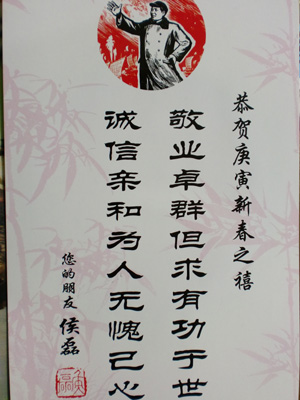 恭贺庚寅新春之禧
敬业卓群但求有功于世
诚信亲和为人无愧己心
您的朋友 侯磊